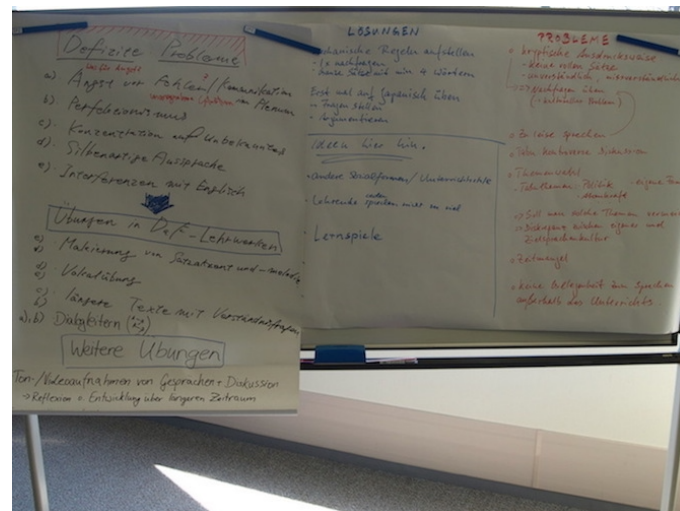 Defizite Probleme
a) Angst vor Fehlern / Kommunikation
im Plenum
b) Perfektionismus
c) Konzentration auf Unbekanntes
d) Silbenartige Aussprache
e) Interferenzen mit Englisch
Übungen in DaF-Lehrwerken
Markierung von Satzakzent und -melodie
Vokalübung
längere Texte mit Verständnisfragen
a), b) Dialoggeländern
Weitere Übungen
Ton-/Videoaufnahmen von Gesprächen + Diskussion
→ Reflexion + Entwicklung über längeren Zeitraum
LÖSUNGEN
mechanische Regeln aufstellen
- 1x nachfragen
- ganze Sätze mit min 4 Wörtern
Erst mal auf Japanisch üben
→ Fragen stellen
→ Argumentieren
Ideen hier hin.
• andere Sozialformen / Unterrichts
• Lehrende sprechen nicht so viel
• Lernspiele
PROBLEME
kryptische Ausdrucksweise
- keine vollen Sätze
- unverständlich, missverständlich
→ Nachfragen üben
(→ kulturelles Problem)
Zu leise sprechen
Tabu: kontroverse Diskussion
Themenwahl
- Tabuthemen: Politik
→ Soll man solche Themen
→ zwischen eigener und
Zielsprachenkultur
Zeitmangel
keine Gelegenheit zum Sprechen
außerhalb des Unterrichts.